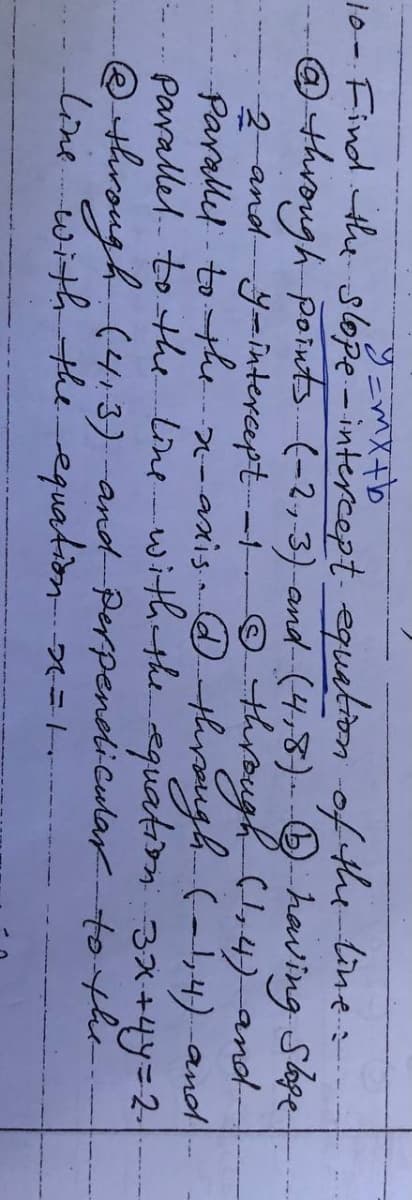 y=mx+b
10- Find the slope-intercept equation of the line:
ⓐ through points (-2,3) and (4,8). ⓑ having slope
2 and y-intercept -1. ⓒ through (1,4) and
Parallel to the x-axis. ⓓ through (-1,4) and
parallel to the line with the equation 3x+4y=2.
ⓔ through (4,3) and perpendicular to the
line with the equation x=1.